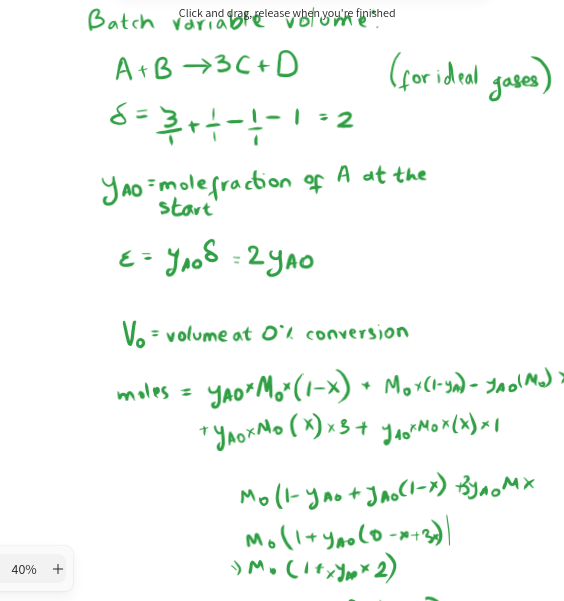 Click and drag, release when you're finished
Batch variable volume:
A + B → 3C + D (for ideal gases)
δ = 3/1 + 1/1 - 1/1 - 1 = 2
yAO = mole fraction of A at the
start
ε = yAO δ = 2yAO
V₀ = volume at 0% conversion
moles = yAO × M₀ × (1-x) + M₀ × (1-yA) - yAO (M₀) x
+ yAO × M₀ (x) × 3 + yAO × M₀ × (x) × 1
M₀ (1 - yAO + yAO (1-x) + 3yAO M x
M₀ (1 + yAO (0 - x + 3x)
M₀ (1 + x yAO × 2)
40% +